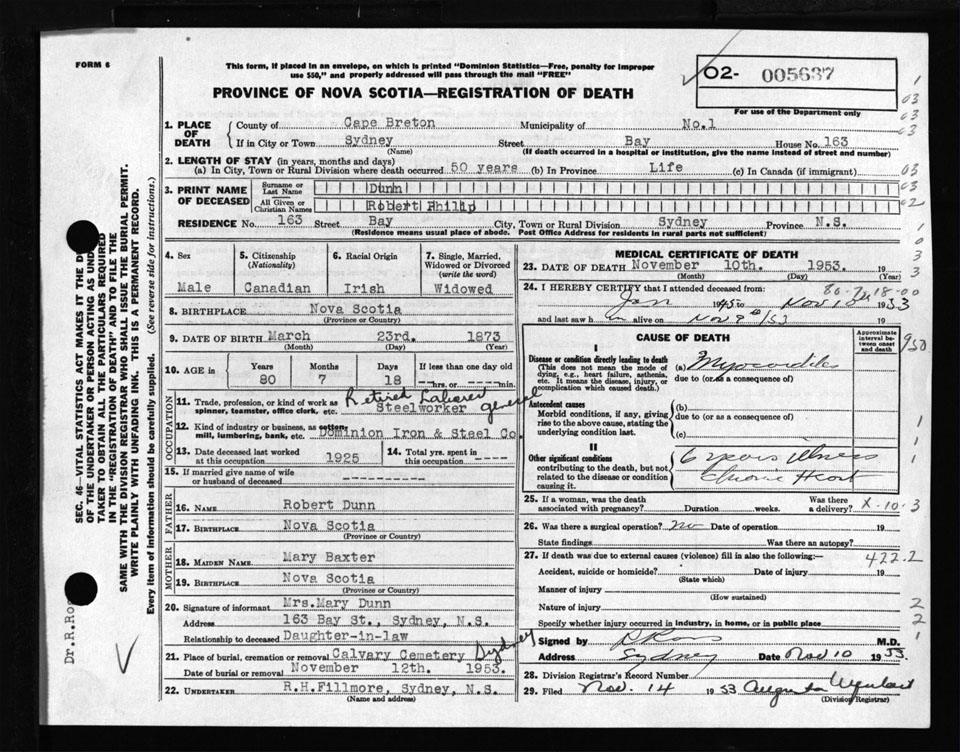 FORM 6
This form, if placed in an envelope, on which is printed "Dominion Statistics—Free, penalty for improper
use $50," and properly addressed will pass through the mail "FREE"
PROVINCE OF NOVA SCOTIA—REGISTRATION OF DEATH
O2- 005637
For use of the Department only
1. PLACE OF DEATH
County of Cape Breton Municipality of No.1
If in City or Town Sydney Street Bay House No. 163
(Name) (If death occurred in a hospital or institution, give the name instead of street and number)
2. LENGTH OF STAY (in years, months and days)
(a) In City, Town or Rural Division where death occurred 50 years (b) In Province Life (c) In Canada (if immigrant)
3. PRINT NAME OF DECEASED
Surname or Last Name Dunn
All Given or Christian Names Robert Philip
RESIDENCE No. 163 Street Bay City, Town or Rural Division Sydney Province N.S.
(Residence means usual place of abode. Post Office Address for residents in rural parts not sufficient)
4. Sex
Male
5. Citizenship
(Nationality)
Canadian
6. Racial Origin
Irish
7. Single, Married,
Widowed or Divorced
(write the word)
Widowed
8. BIRTHPLACE Nova Scotia
(Province or Country)
9. DATE OF BIRTH March 23rd. 1873
(Month) (Day) (Year)
10. AGE in
Years Months Days If less than one day old
80 7 18 --hrs. or ----min.
OCCUPATION
11. Trade, profession or kind of work as
spinner, teamster, office clerk, etc. Steelworker
Retired Laborer general
12. Kind of industry or business, as cotton-
mill, lumbering, bank, etc. Dominion Iron & Steel Co.
13. Date deceased last worked
at this occupation 1925
14. Total yrs. spent in
this occupation ----
15. If married give name of wife
or husband of deceased ----------
FATHER
16. NAME Robert Dunn
17. BIRTHPLACE Nova Scotia
(Province or Country)
MOTHER
18. MAIDEN NAME Mary Baxter
19. BIRTHPLACE Nova Scotia
(Province or Country)
20. Signature of informant Mrs.Mary Dunn
Address 163 Bay St., Sydney, N.S.
Relationship to deceased Daughter-in-law
21. Place of burial, cremation or removal Calvary Cemetery Sydney
Date of burial or removal November 12th. 1953.
22. UNDERTAKER R.H.Fillmore, Sydney, N.S.
MEDICAL CERTIFICATE OF DEATH
23. DATE OF DEATH November 10th. 1953. 19
(Month) (Day) (Year)
80-7-18-00
24. I HEREBY CERTIFY that I attended deceased from:
Jan 1945 to Nov 10 1953
and last saw h im alive on Nov 9th/53 19
CAUSE OF DEATH
Approximate interval between onset and death
I
Disease or condition directly leading to death
(This does not mean the mode of
dying, e.g., heart failure, asthenia,
etc. It means the disease, injury, or
complication which caused death.)
(a) Myocarditis
due to (or as a consequence of)
Antecedent causes
Morbid conditions, if any, giving
rise to the above cause, stating the
underlying condition last.
(b)
due to (or as a consequence of)
(c)
II
Other significant conditions
contributing to the death, but not
related to the disease or condition
causing it.
6 years illness
Chronic Heart
25. If a woman, was the death
associated with pregnancy? Duration weeks. Was there
a delivery? X-10-3
26. Was there a surgical operation? no Date of operation 19
State findings Was there an autopsy?
27. If death was due to external causes (violence) fill in also the following:— 422.2
Accident, suicide or homicide? Date of injury 19
(State which)
Manner of injury
(How sustained)
Nature of injury
Specify whether injury occurred in industry, in home, or in public place
Signed by R Ross M.D.
Address Sydney Date Nov 10 1953.
28. Division Registrar's Record Number
29. Filed Nov. 14 1953 Augusta
(Division Registrar)
SEC. 46—VITAL STATISTICS ACT MAKES IT THE
OF THE UNDERTAKER OR PERSON ACTING AS
TAKER TO OBTAIN ALL THE PARTICULARS REQUIRED
IN THE "REGISTRATION OF DEATH" AND TO FILE THE
SAME WITH THE DIVISION REGISTRAR WHO SHALL ISSUE THE BURIAL PERMIT.
WRITE PLAINLY WITH UNFADING INK. THIS IS A PERMANENT RECORD.
Every item of Information should be carefully supplied. (See reverse side for instructions.)
Dr.R.Ro
1
03
03
03
03
02
1
0
3
3
3
950
1
1
1
2
2
1